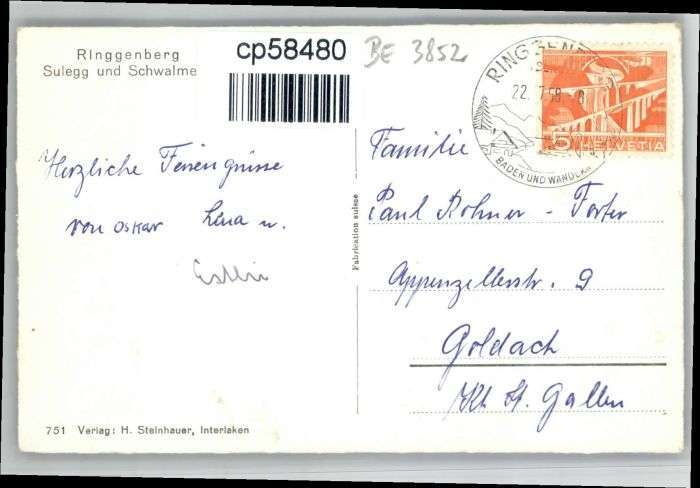 Ringgenberg
Sulegg und Schwalme
cp58480
BE 3852
22. 7. 58 - 8
BADEN UND WANDERN
5
HELVETIA
Herzliche Feriengrüsse
von Oskar Lina u.
Familie
Paul Rohner - Forter
Appenzellerstr. 9
Goldach
Kt. St. Gallen
Fabrication suisse
751 Verlag: H. Steinhauer, Interlaken